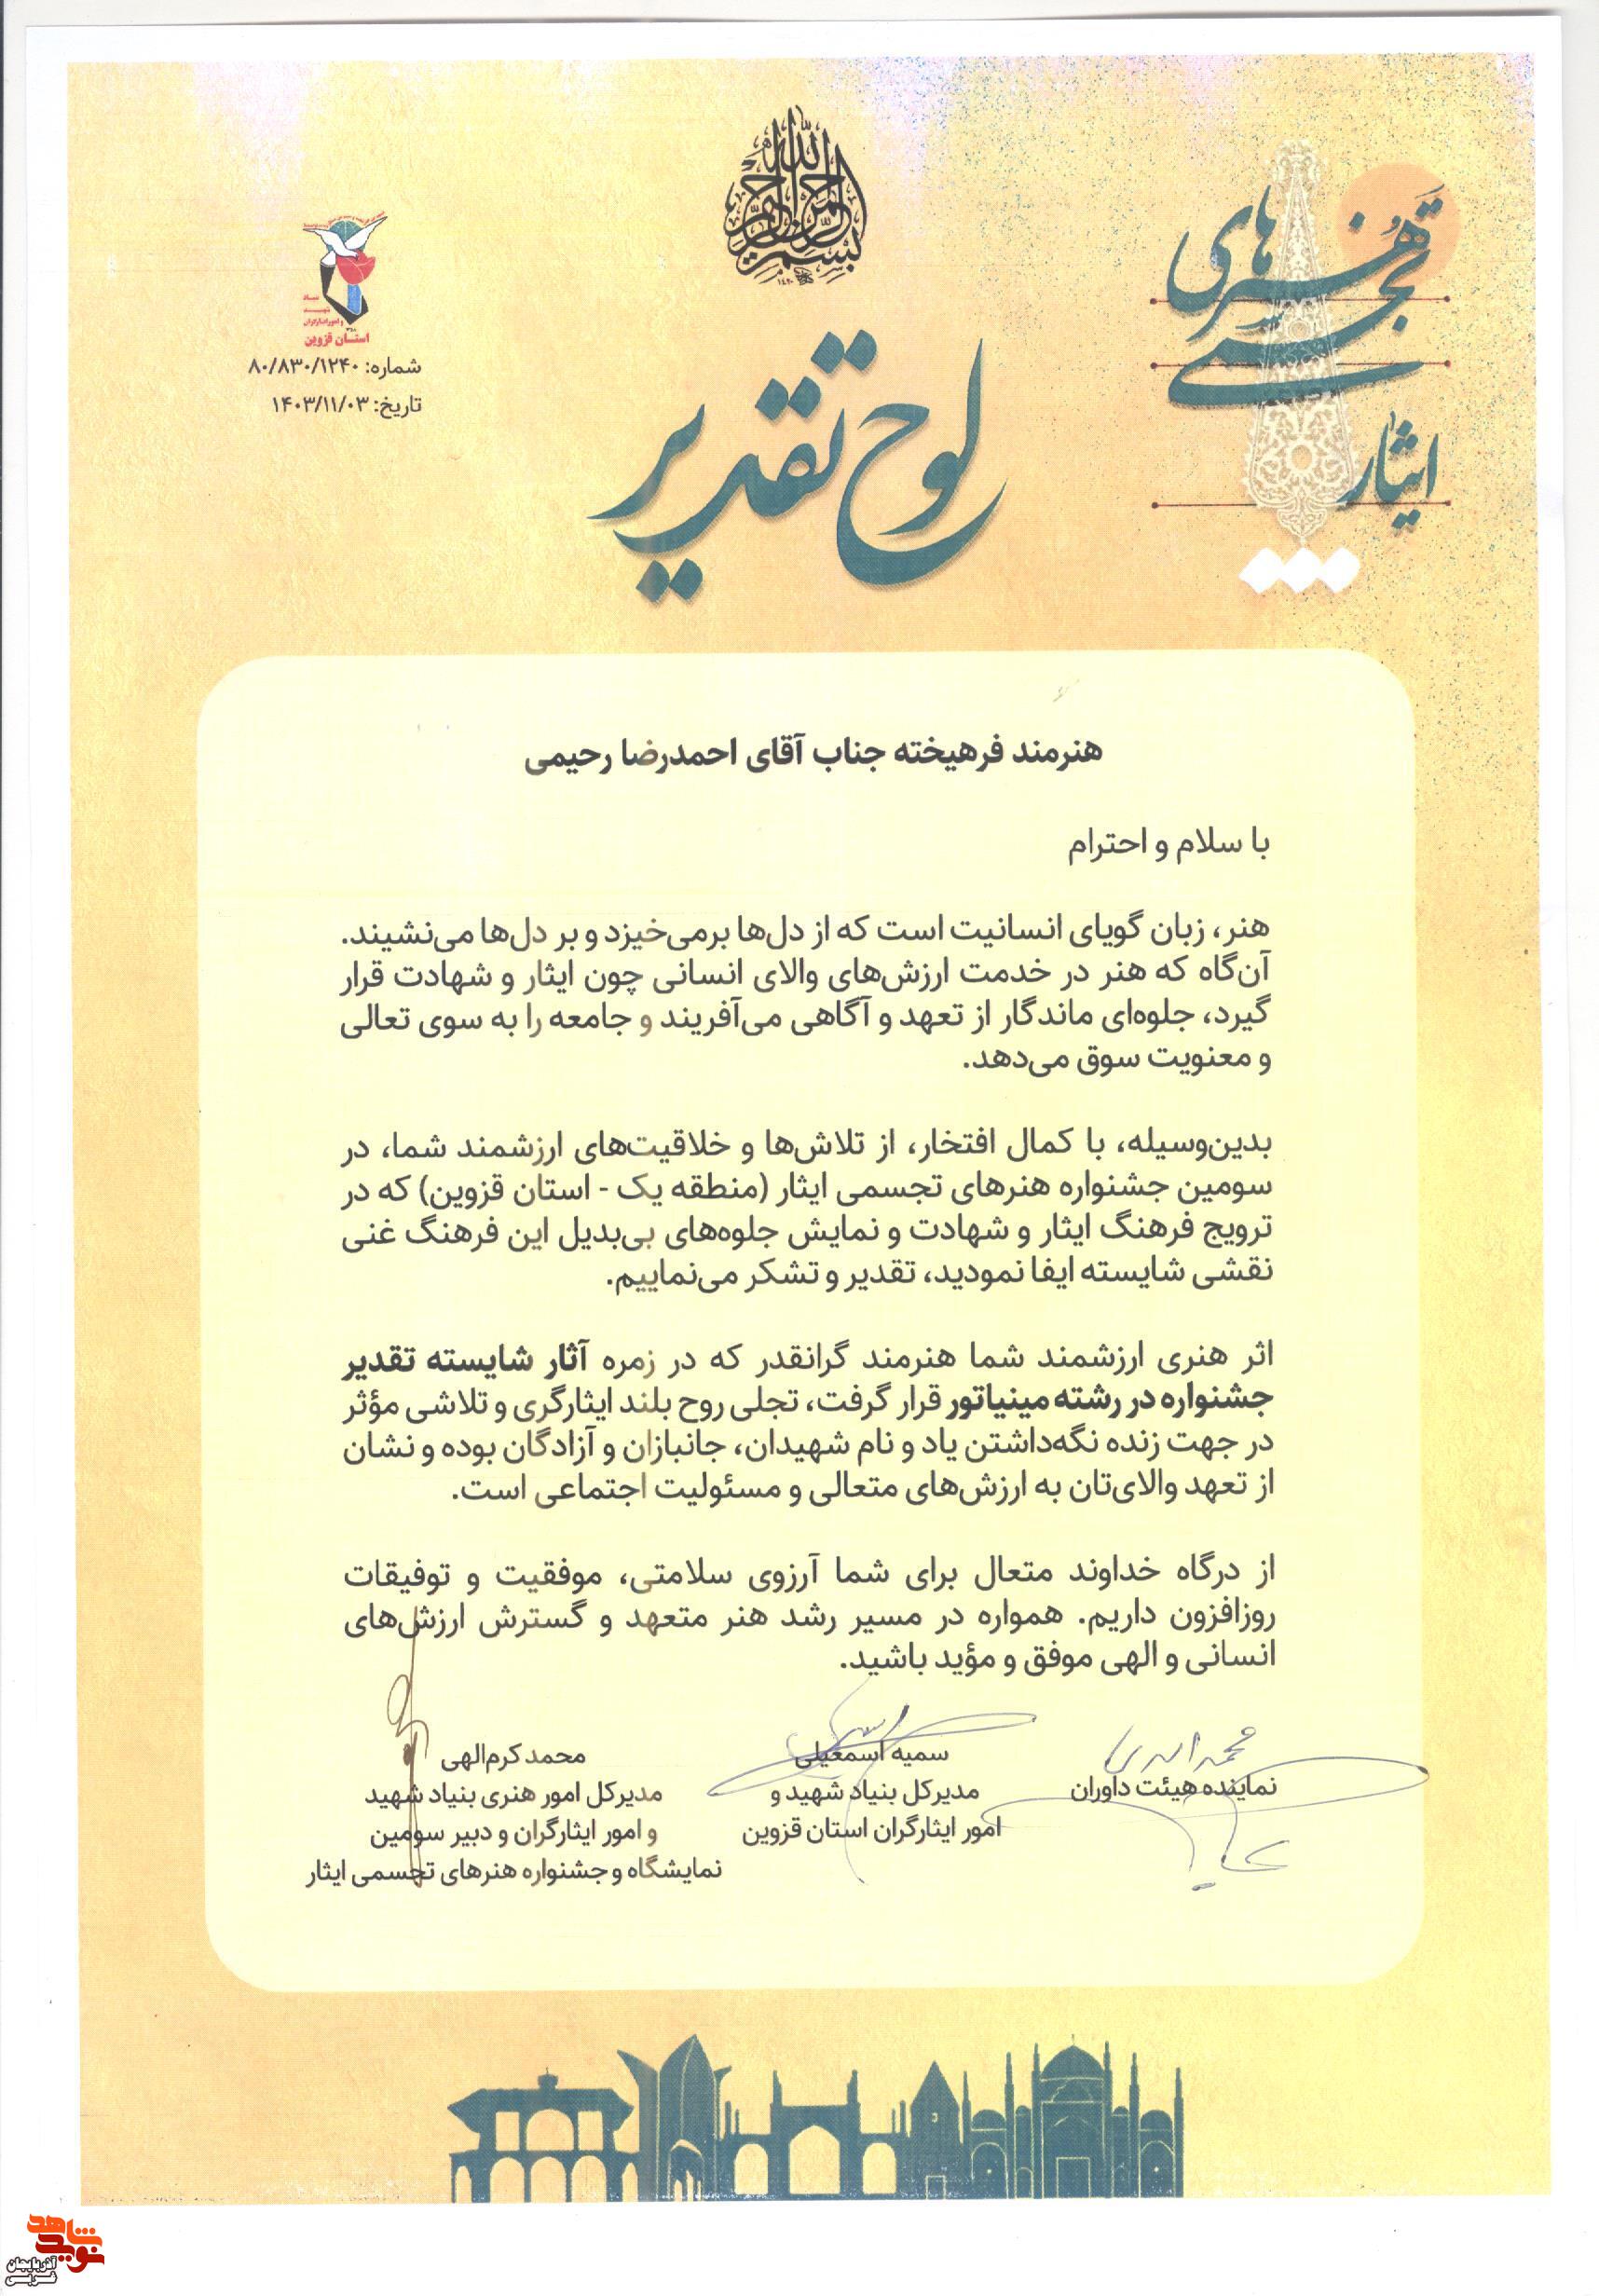 بسم الله الرحمن الرحیم
هنرهای
تجسمی
ایثار
استان قزوین
شماره: ۸۰/۸۳۰/۱۲۴۰
تاریخ: ۱۴۰۳/۱۱/۰۳
لوح تقدیر
هنرمند فرهیخته جناب آقای احمدرضا رحیمی
با سلام و احترام
هنر، زبان گویای انسانیت است که از دل‌ها برمی‌خیزد و بر دل‌ها می‌نشیند.
آن‌گاه که هنر در خدمت ارزش‌های والای انسانی چون ایثار و شهادت قرار
گیرد، جلوه‌ای ماندگار از تعهد و آگاهی می‌آفریند و جامعه را به سوی تعالی
و معنویت سوق می‌دهد.
بدین‌وسیله، با کمال افتخار، از تلاش‌ها و خلاقیت‌های ارزشمند شما، در
سومین جشنواره هنرهای تجسمی ایثار (منطقه یک - استان قزوین) که در
ترویج فرهنگ ایثار و شهادت و نمایش جلوه‌های بی‌بدیل این فرهنگ غنی
نقشی شایسته ایفا نمودید، تقدیر و تشکر می‌نماییم.
اثر هنری ارزشمند شما هنرمند گرانقدر که در زمره آثار شایسته تقدیر
جشنواره در رشته مینیاتور قرار گرفت، تجلی روح بلند ایثارگری و تلاشی مؤثر
در جهت زنده نگه‌داشتن یاد و نام شهیدان، جانبازان و آزادگان بوده و نشان
از تعهد والای‌تان به ارزش‌های متعالی و مسئولیت اجتماعی است.
از درگاه خداوند متعال برای شما آرزوی سلامتی، موفقیت و توفیقات
روزافزون داریم. همواره در مسیر رشد هنر متعهد و گسترش ارزش‌های
انسانی و الهی موفق و مؤید باشید.
نماینده هیئت داوران
سمیه اسمعیلی
مدیرکل بنیاد شهید و
امور ایثارگران استان قزوین
محمد کرم‌الهی
مدیرکل امور هنری بنیاد شهید
و امور ایثارگران و دبیر سومین
نمایشگاه و جشنواره هنرهای تجسمی ایثار
نوید شاهد
آذربایجان
غربی